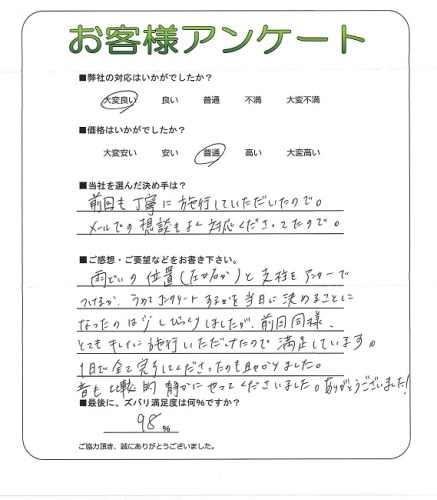 お客様アンケート
■弊社の対応はいかがでしたか？
大変良い 良い 普通 不満 大変不満
■価格はいかがでしたか？
大変安い 安い 普通 高い 大変高い
■当社を選んだ決め手は？
前回も丁寧に施行していただいたので。
メールでの相談もよく対応くださってたので。
■ご感想・ご要望などをお書き下さい。
雨どいの位置(左か右か)と支柱をアンカーで
つけるか、うめてコンクリートするかを当日に決めることに
なったのは少しびっくりしましたが、前回同様、
とてもキレイに施行いただけたので満足しています。
1日で全て完了してくださったのも助かりました。
音も比較的静かにやってくださいました。ありがとうございました!
■最後に、ズバリ満足度は何%ですか？
98 %
ご協力頂き、誠にありがとうございました。